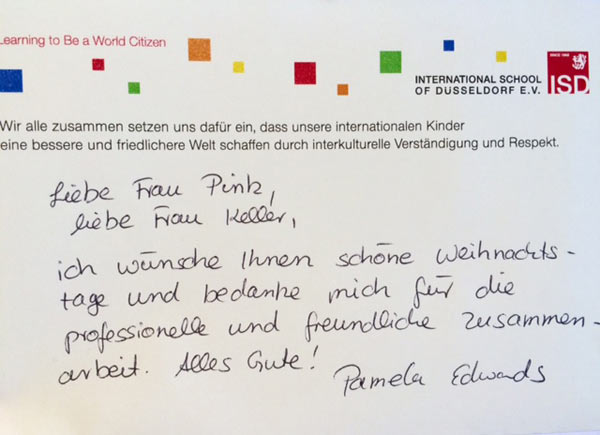 Learning to Be a World Citizen
INTERNATIONAL SCHOOL
OF DUSSELDORF E.V.
SINCE 1968
ISD
Wir alle zusammen setzen uns dafür ein, dass unsere internationalen Kinder
eine bessere und friedlichere Welt schaffen durch interkulturelle Verständigung und Respekt.
Liebe Frau Pink,
liebe Frau Keller,
ich wünsche Ihnen schöne Weihnachts-
tage und bedanke mich für die
professionelle und freundliche Zusammen-
arbeit. Alles Gute!
Pamela Edwards